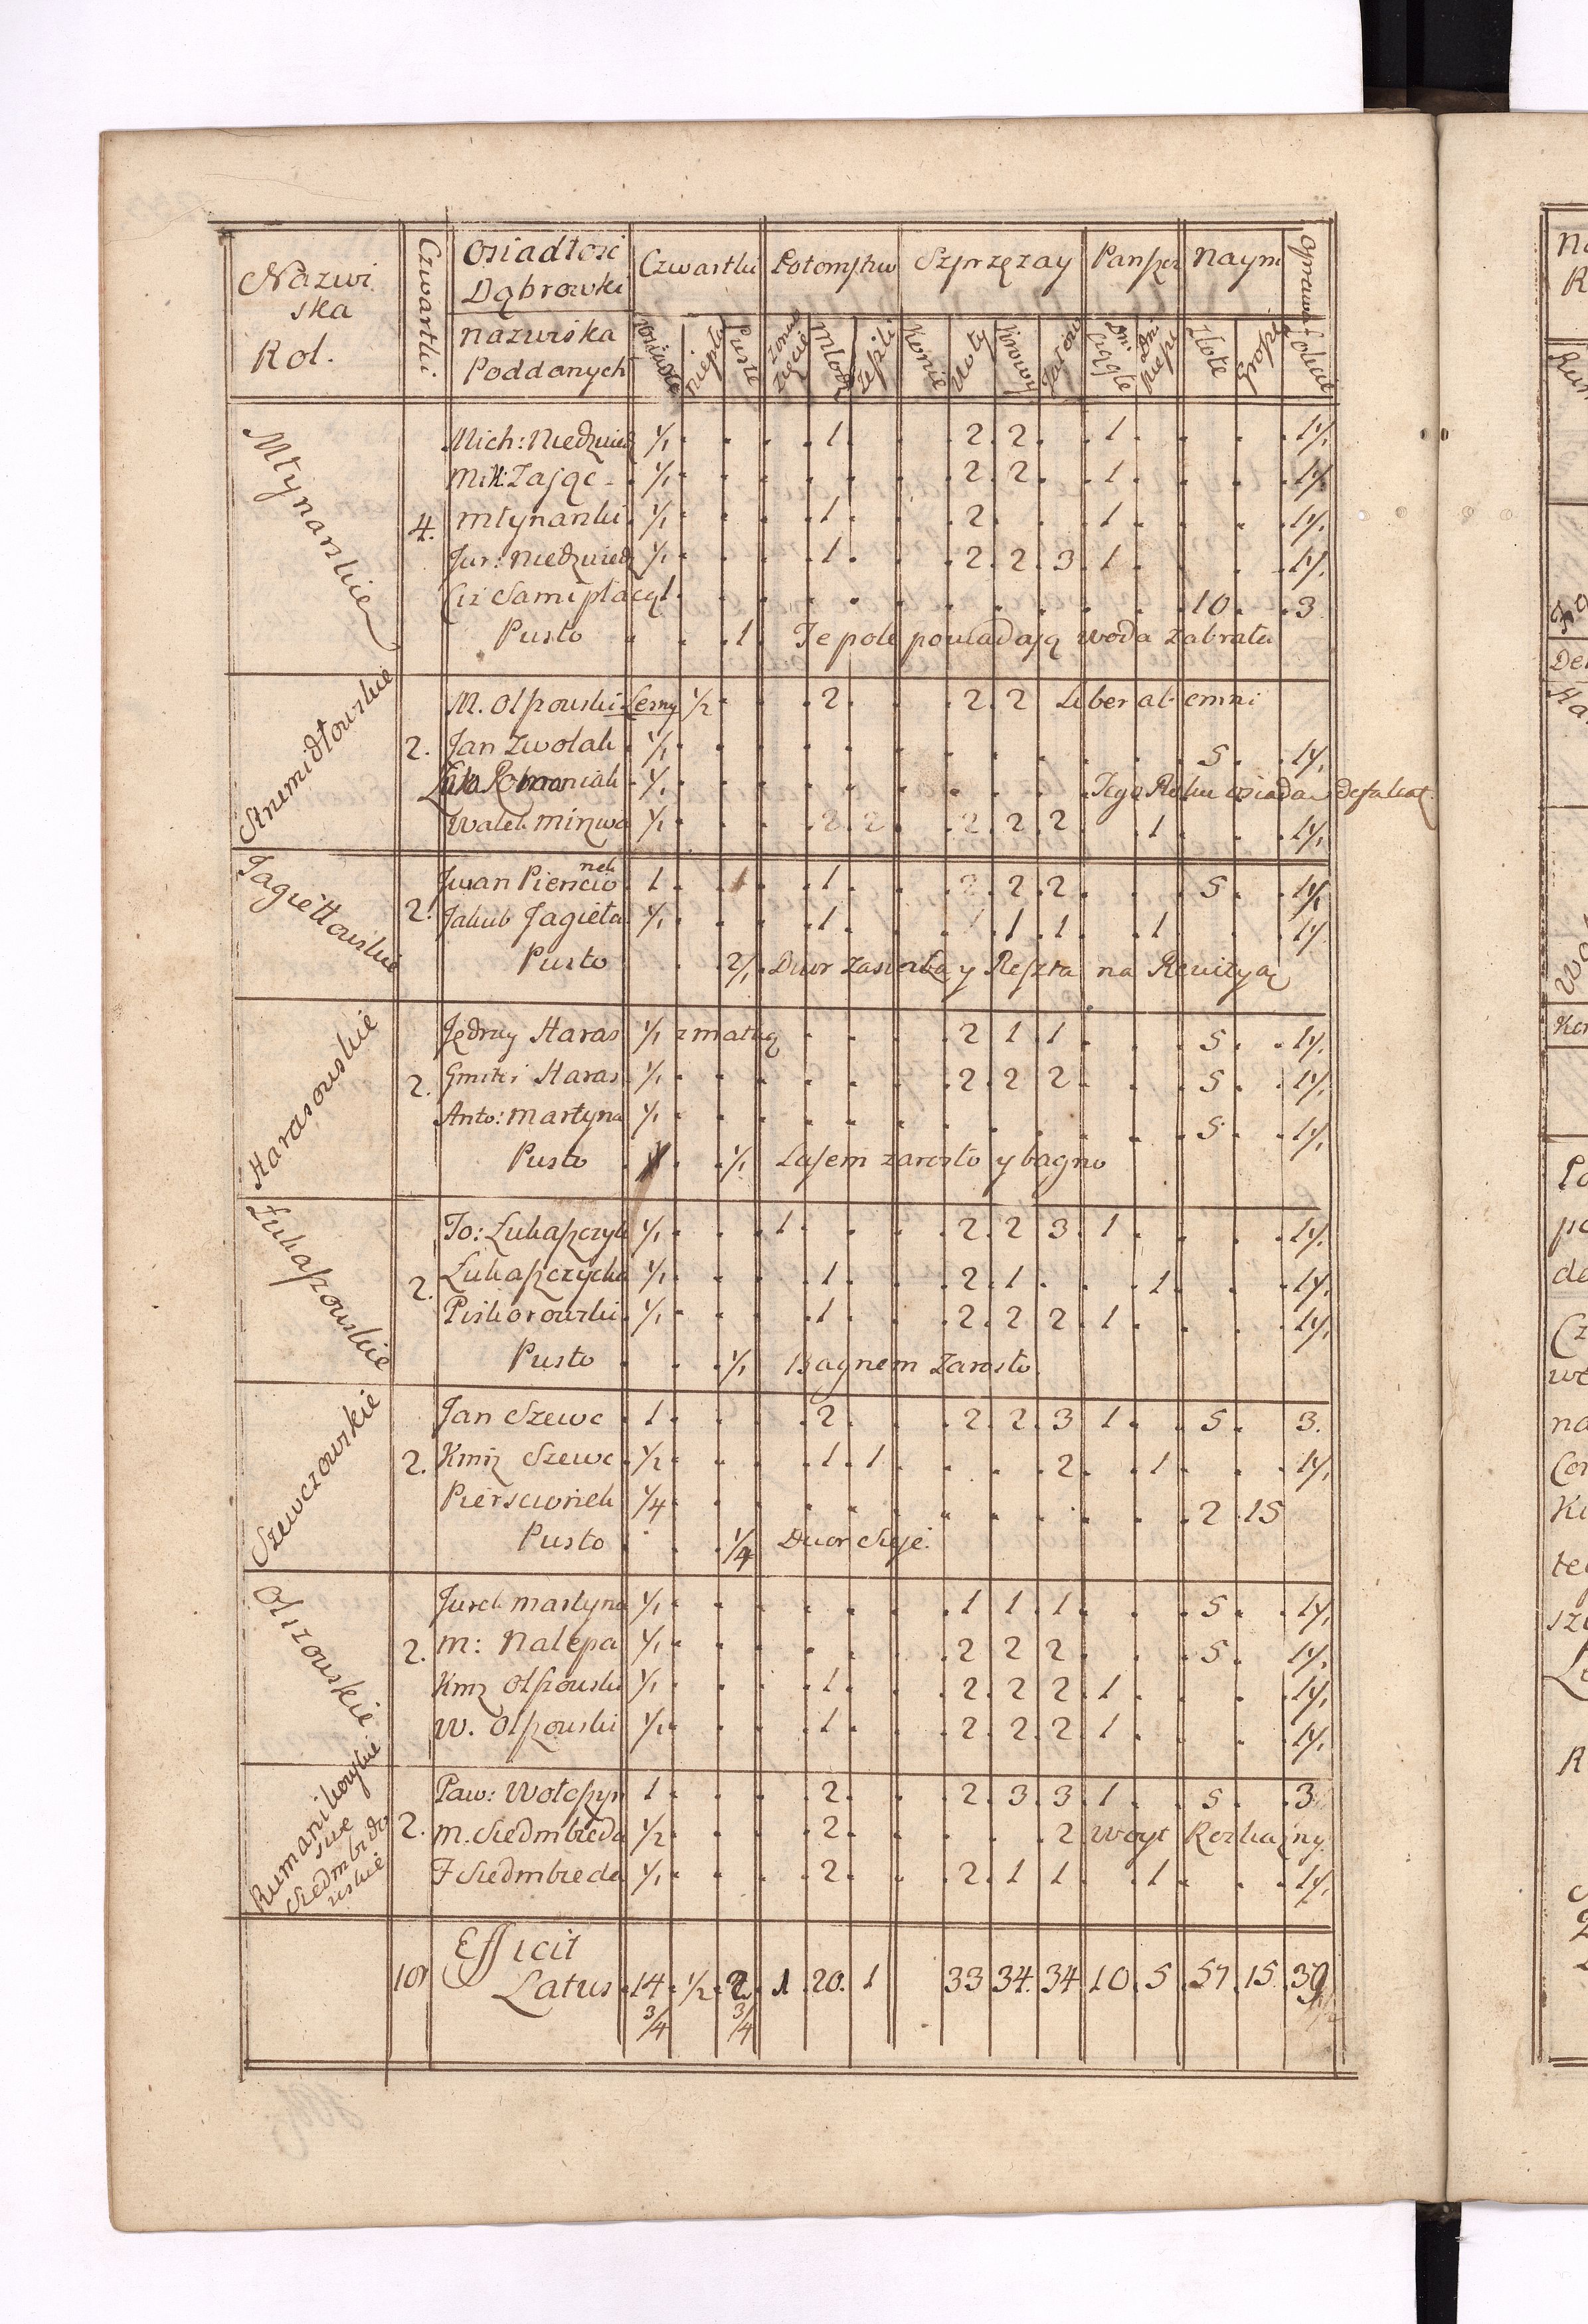 Nazwi
ska
Rol.
Czwartki
Osiadłość
Dąbrowki
nazwiska
Poddanych
Czwartki Potomstwo Szprzęzay Pansz Naym
Puste Młodz Konie Woły Krowy Złote Groszy
Młynarskie 4.
Mich: Niedzwied 1/1 . . . 1 . . . 2 . 2 . . 1 . . . . 1 1/1
Mik: Zając . 1/1 . . . . . . 2 . 2 . . 1 . . . . 1 1/1
Młynarski 1/1 . . . 1 . . . 2 . . . 1 . . . . 1 1/1
Jur: Niedzwied 1/1 . . . 1 . . . 2 . 2 . 3 1 . . . . 1 1/1
Ciż Sami płacą 1 . . . . . . . . . . . 10 . . 3
Pusto . . . 1 Te pole powiadają woda zabrała
Strumidłowskie 2.
M. Olszowski Lesny 1/2 . . 2 . . 2 . 2 Liber ab omni
Jan Zwolak 1/1 . . . . . . . . . . . . . 5 . . 1 1/1
Romaniak 1/1 . . . . . . . . . . Tego Roku osiada Defalcat.
Walek Mizwa 1/1 . . . 2 . 2 . 2 . 2 . 2 . 1 . . . 1 1/1
Jagiełłowskie 2.
nek
Iwan Piencio 1 . . 1 . 1 . . . 2 . 2 . 2 . . . 5 . . 1 1/1
Jakub Jagieła 1/1 . . . 1 . . . 1 1 . 1 . . 1 . . . 1 1/1
Pusto . . 2/1 . Dwor zasiewa y Reszta na Rewizyą
Harasowskie 2.
Jędrzy Haras 1/1 z matką . . . . 2 1 . 1 . . . 5 . . 1 1/1
Gmitri Haras 1/1 . . . . . . . 2 . 2 . 2 . . . 5 . . 1 1/1
Anto: Martyna 1/1 . . . . . . . . . . . . . 5 . . 1 1/1
Pusto . . . 1/1 Lasem zarosło y bagno
Łukaszowskie 2.
To: Łukaszczyk 1/1 . . 1 . . . . 2 . 2 3 . 1 . . . . 1 1/1
Łukaszczycha 1/1 . . . 1 . . . 2 . 1 . . . 1 . . . 1 1/1
Piskorowski 1/1 . . . 1 . . . 2 . 2 2 . 1 . . . . 1 1/1
Pusto . . . 1/1 Bagnem Zarosło.
Szewczowskie 2.
Jan Szewc . 1 . . . . 2 . . . 2 . 2 . 3 1 . . 5 . 3.
Kmiz Szewc 1/2 . . . 1 . 1 . . . . 2 . . 1 . . . 1 1/1
Pierscionek 1/4 . . . . . . . . . . . . . 2 . 15
Pusto . . . 1/4 Dwor Sieje.
Olszowskie 2.
Jurek Martyna 1/1 . . . . . . . 1 1 . 1 . . . 5 . . 1 1/1
M: Nalepa 1/1 . . . . . . . 2 2 2 . . . 5 . . 1 1/1
Kmz Olszowski 1/1 . . . 1 . . . 2 . 2 2 . 1 . . . . 1 1/1
W. Olszowski 1/1 . . . 1 . . . 2 . 2 2 . 1 . . . . 1 1/1
Siedmbido
wskie 2.
Paw: Wołczyn 1 . . . . 2 . . . 2 . 3 3 . 1 . . 5 . . 3
M. Siedmbieda 1/2 . . . 2 . . . . . . 2 Woyt Rozkazny.
F Siedmbieda 1/1 . . . 2 . . . 2 1 1 . . 1 . . . 1 1/1
Efficit
10 Latus . 14 3/4 . 1/2 . 2 3/4 . 1 . 20 . 1 33 34 . 34 10 . 5 . 57 . 15 . 39 1/2